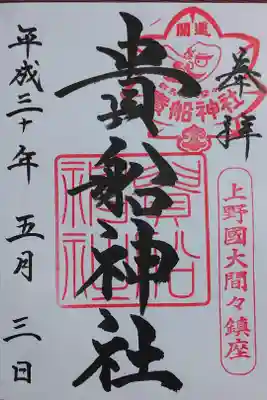 奉拝
開運
貴船神社
上野國大間々鎮座
貴船神社
貴船
神社
平成三十年 五月 三日